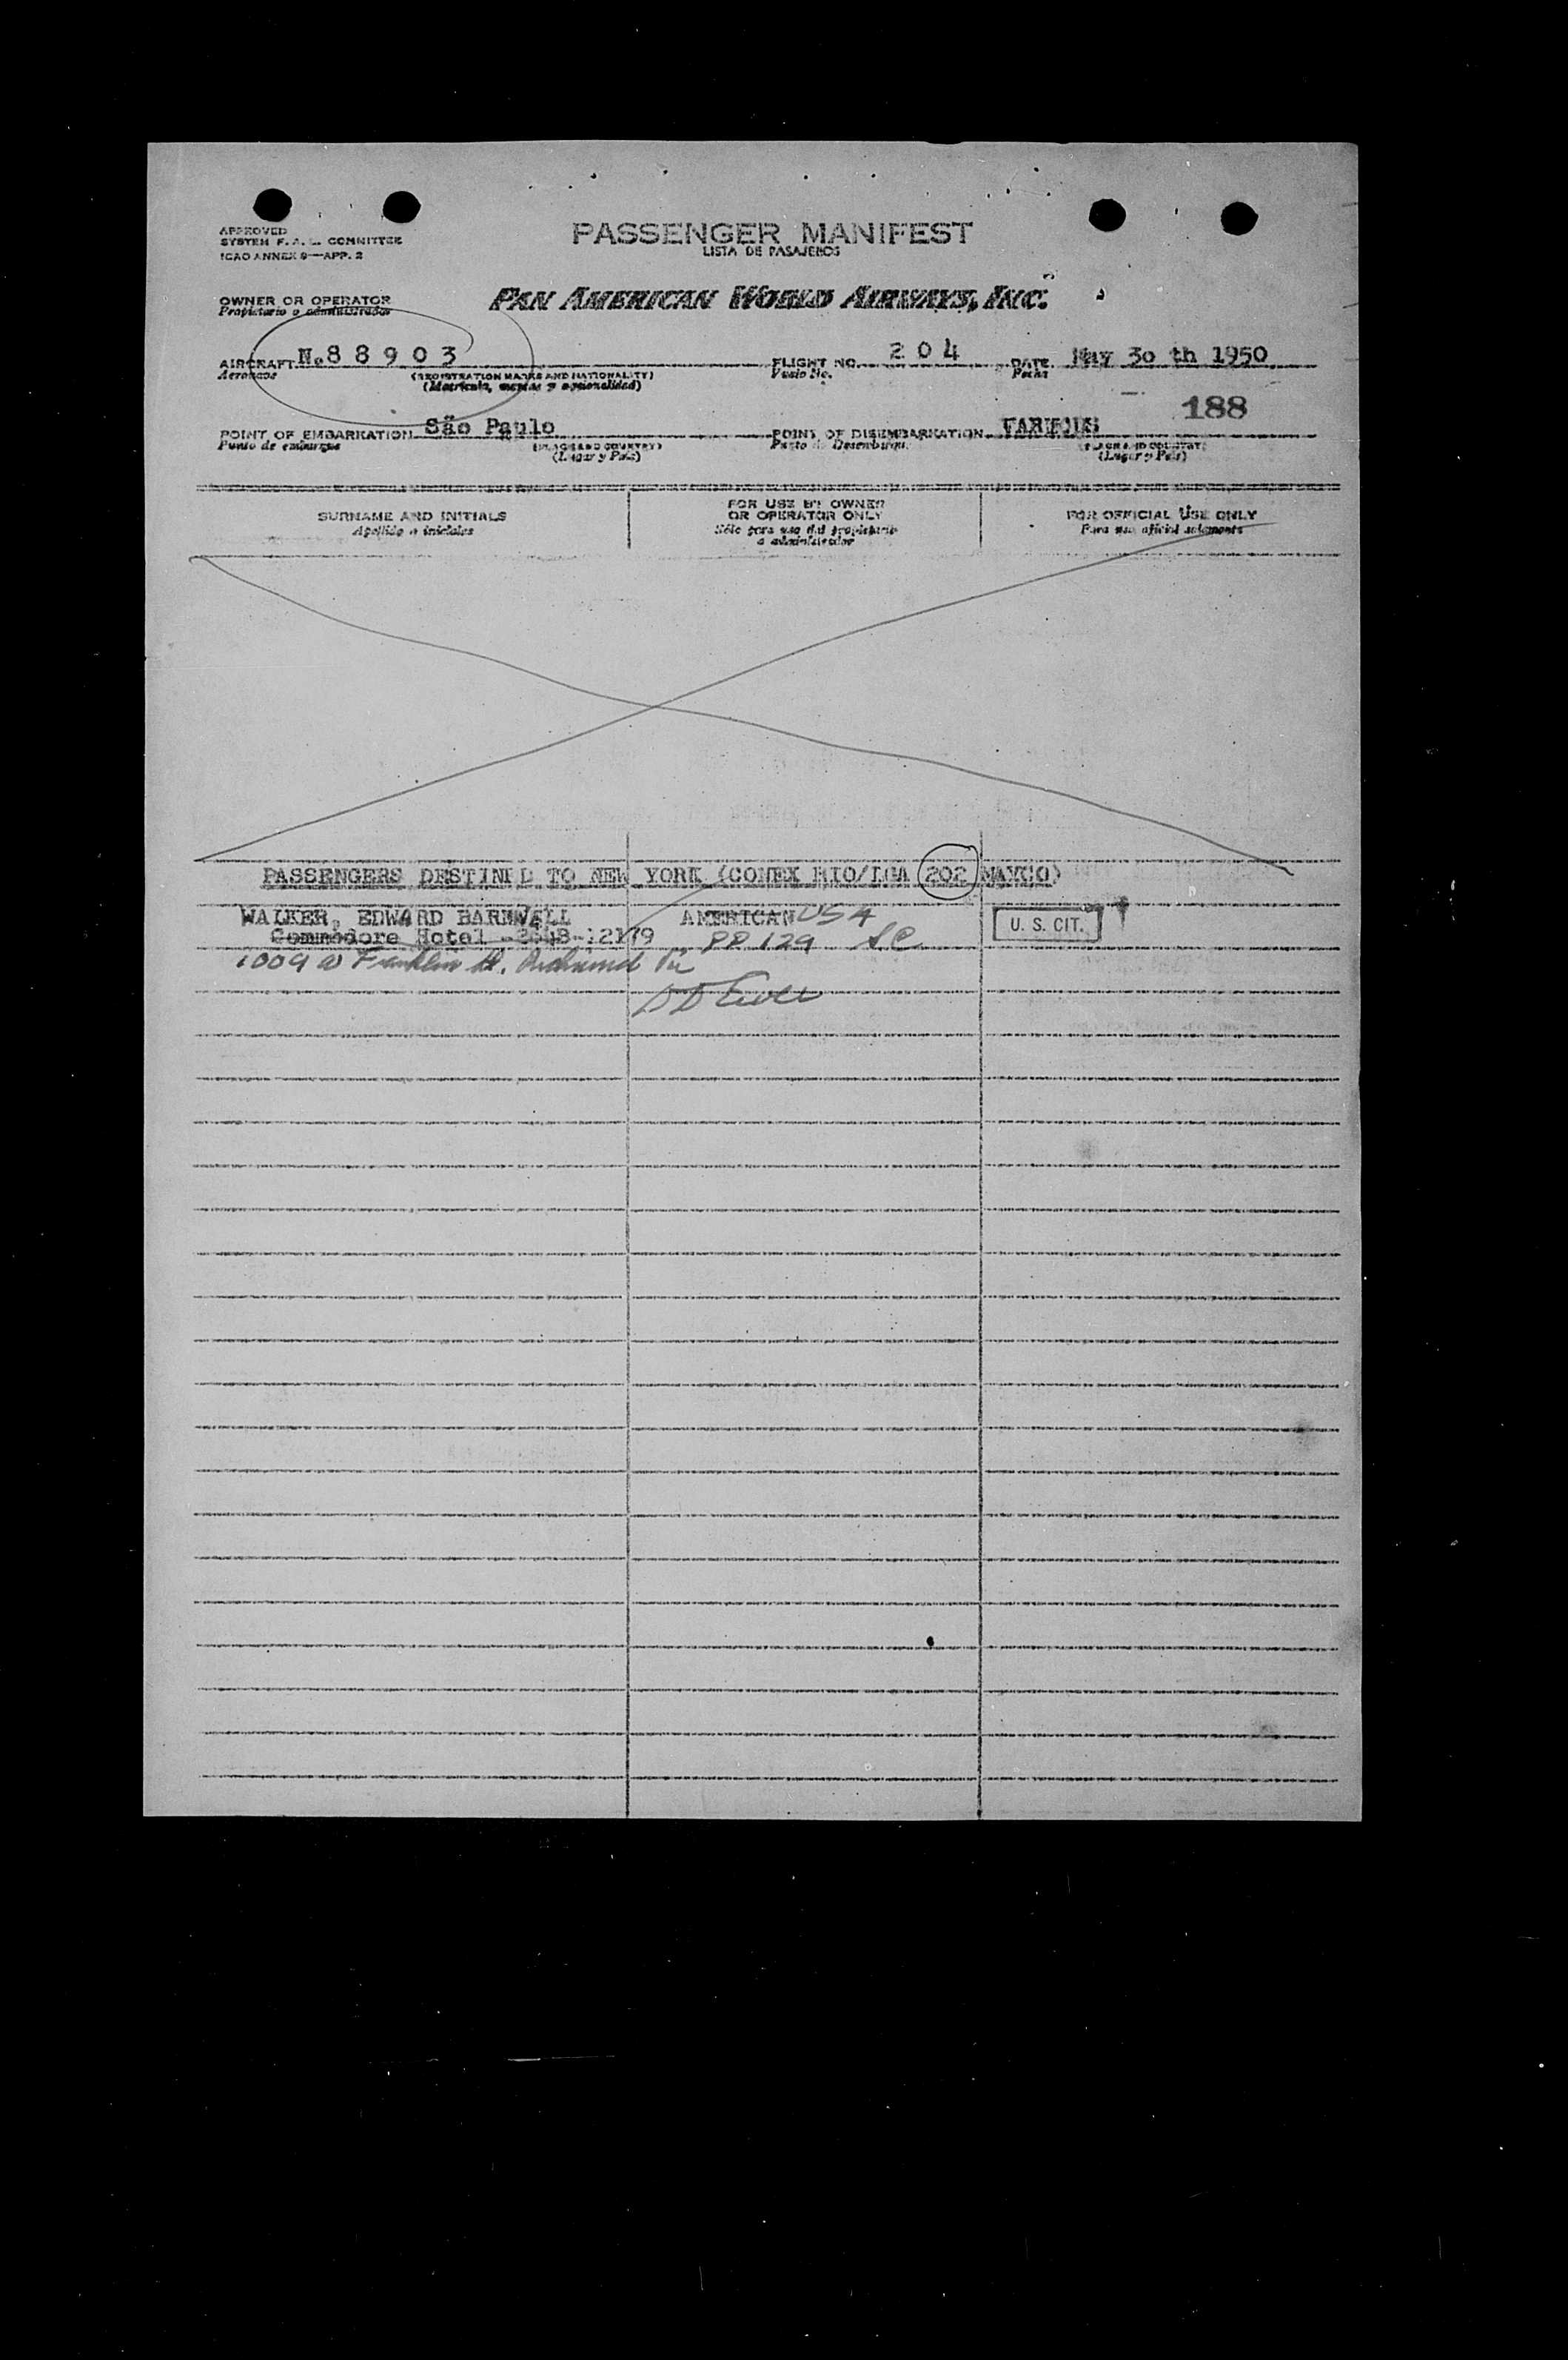 APPROVED
SYSTEM F. A. L. COMMITTEE
ICAO ANNEX 9—APP. 2
PASSENGER MANIFEST
LISTA DE PASAJEROS
OWNER OR OPERATOR
Propietario o administrador
PAN AMERICAN WORLD AIRWAYS, INC.
AIRCRAFT N.88903 FLIGHT NO. 204 DATE May 3o th 1950
Aeronave (REGISTRATION MARKS AND NATIONALITY) Vuelo No. Fecha
(Matrícula, marcas y nacionalidad)
188
POINT OF EMBARKATION São Paulo POINT OF DISEMBARKATION VARIOUS
Punto de embarque (PLACE AND COUNTRY) Punto de Desembarque (PLACE AND COUNTRY)
(Lugar y País) (Lugar y País)
SURNAME AND INITIALS
Apellido e iniciales
FOR USE BY OWNER
OR OPERATOR ONLY
Sólo para uso del propietario
o administrador
FOR OFFICIAL USE ONLY
Para uso oficial solamente
PASSENGERS DESTINED TO NEW YORK (CONEX RIO/LGA 202 MAY30)
WALKER, EDWARD BARNWELL AMERICAN USA U. S. CIT.
Commodore Hotel PP 129 SC
1009 W Franklin St. Richmond Va